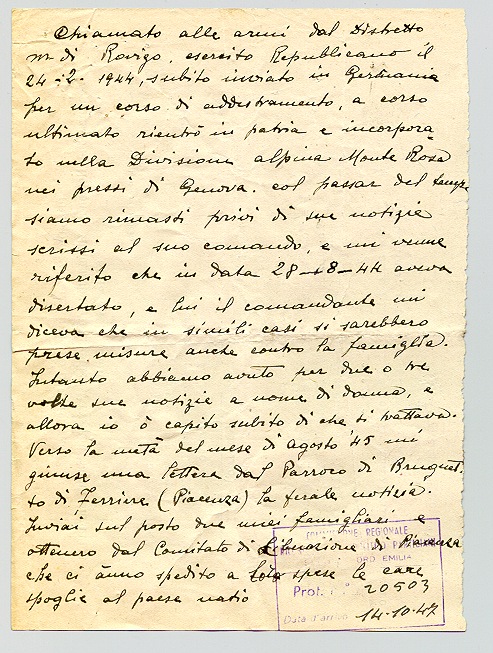 Chiamato alle armi dal Distretto
m. di Rovigo, esercito Republicano il
24-2-1944, subito inviato in Germania
per un corso di addestramento, a corso
ultimato rientrò in patria e incorpora-
to nella Divisione alpina Monte Rosa
nei pressi di Genova. col passar del tempo
siamo rimasti privi di sue notizie
scrissi al suo comando, e mi venne
riferito che in data 28-8-44 aveva
disertato, e lui il comandante mi
diceva che in simili casi si sarebbero
prese misure anche contro la famiglia.
Intanto abbiamo avuto per due o tre
volte sue notizie a nome di donna, e
allora io ò capito subito di che si trattava.
Verso la metà del mese di agosto '45 mi
giunse una lettera dal Parroco di Brugnet-
to di Ferriere (Piacenza) la ferale notizia.
Inviai sul posto due miei famigliari e
ottenero dal Comitato di Liberazione di Piacenza
che ci ànno spedito a loro spese le care
spoglie al paese natio
COMMISSIONE REGIONALE
EMILIA
Prot. 20503
Data d'arrivo 14-10-47